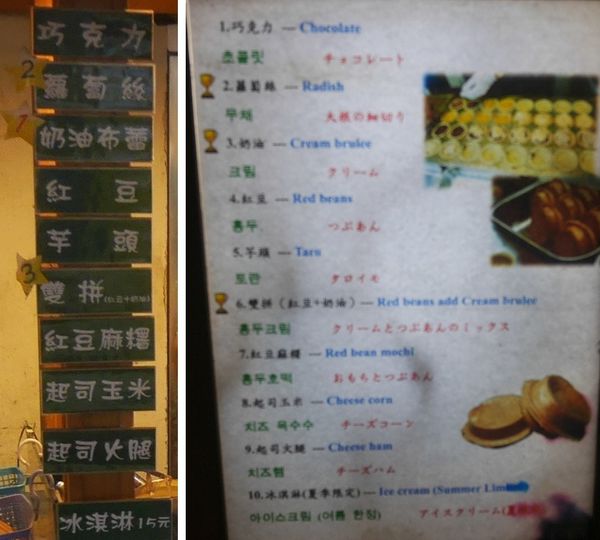 巧克力
2
蘿蔔絲
1
奶油布蕾
紅豆
芋頭
3
雙拼(紅豆+奶油)
紅豆麻糬
起司玉米
起司火腿
冰淇淋15元
1.巧克力 — Chocolate
초콜릿 チョコレート
2.蘿蔔絲 — Radish
무채 大根の細切り
3.奶油 — Cream brulee
크림 クリーム
4.紅豆 — Red beans
홍두 つぶあん
5.芋頭 — Taro
토란 タロイモ
6.雙拼（紅豆+奶油） — Red beans add Cream brulee
홍두크림 クリームとつぶあんのミックス
7.紅豆麻糬 — Red bean mochi
홍두호떡 おもちとつぶあん
8.起司玉米 — Cheese corn
치즈 옥수수 チーズコーン
9.起司火腿 — Cheese ham
치즈햄 チーズハム
10.冰淇淋(夏季限定) — Ice cream (Summer
아이스크림 (여름 한정) アイスクリーム(